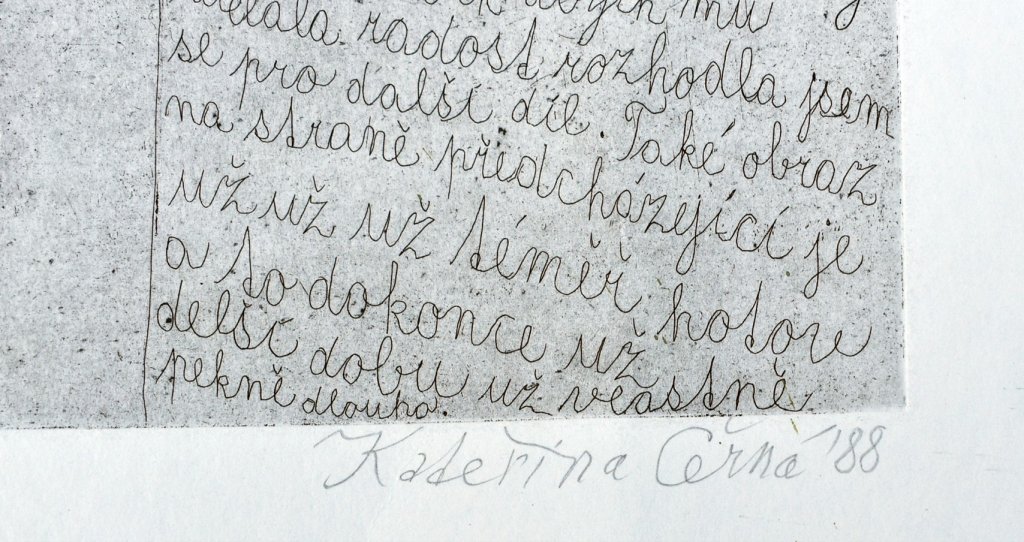 abych mu
udělala radost rozhodla jsem
se pro další díl. Také obraz
na straně předcházející je
už už už téměř hotov
a to dokonce už
delší dobu už vlastně
pekně dlouho.
Kateřina Černá '88